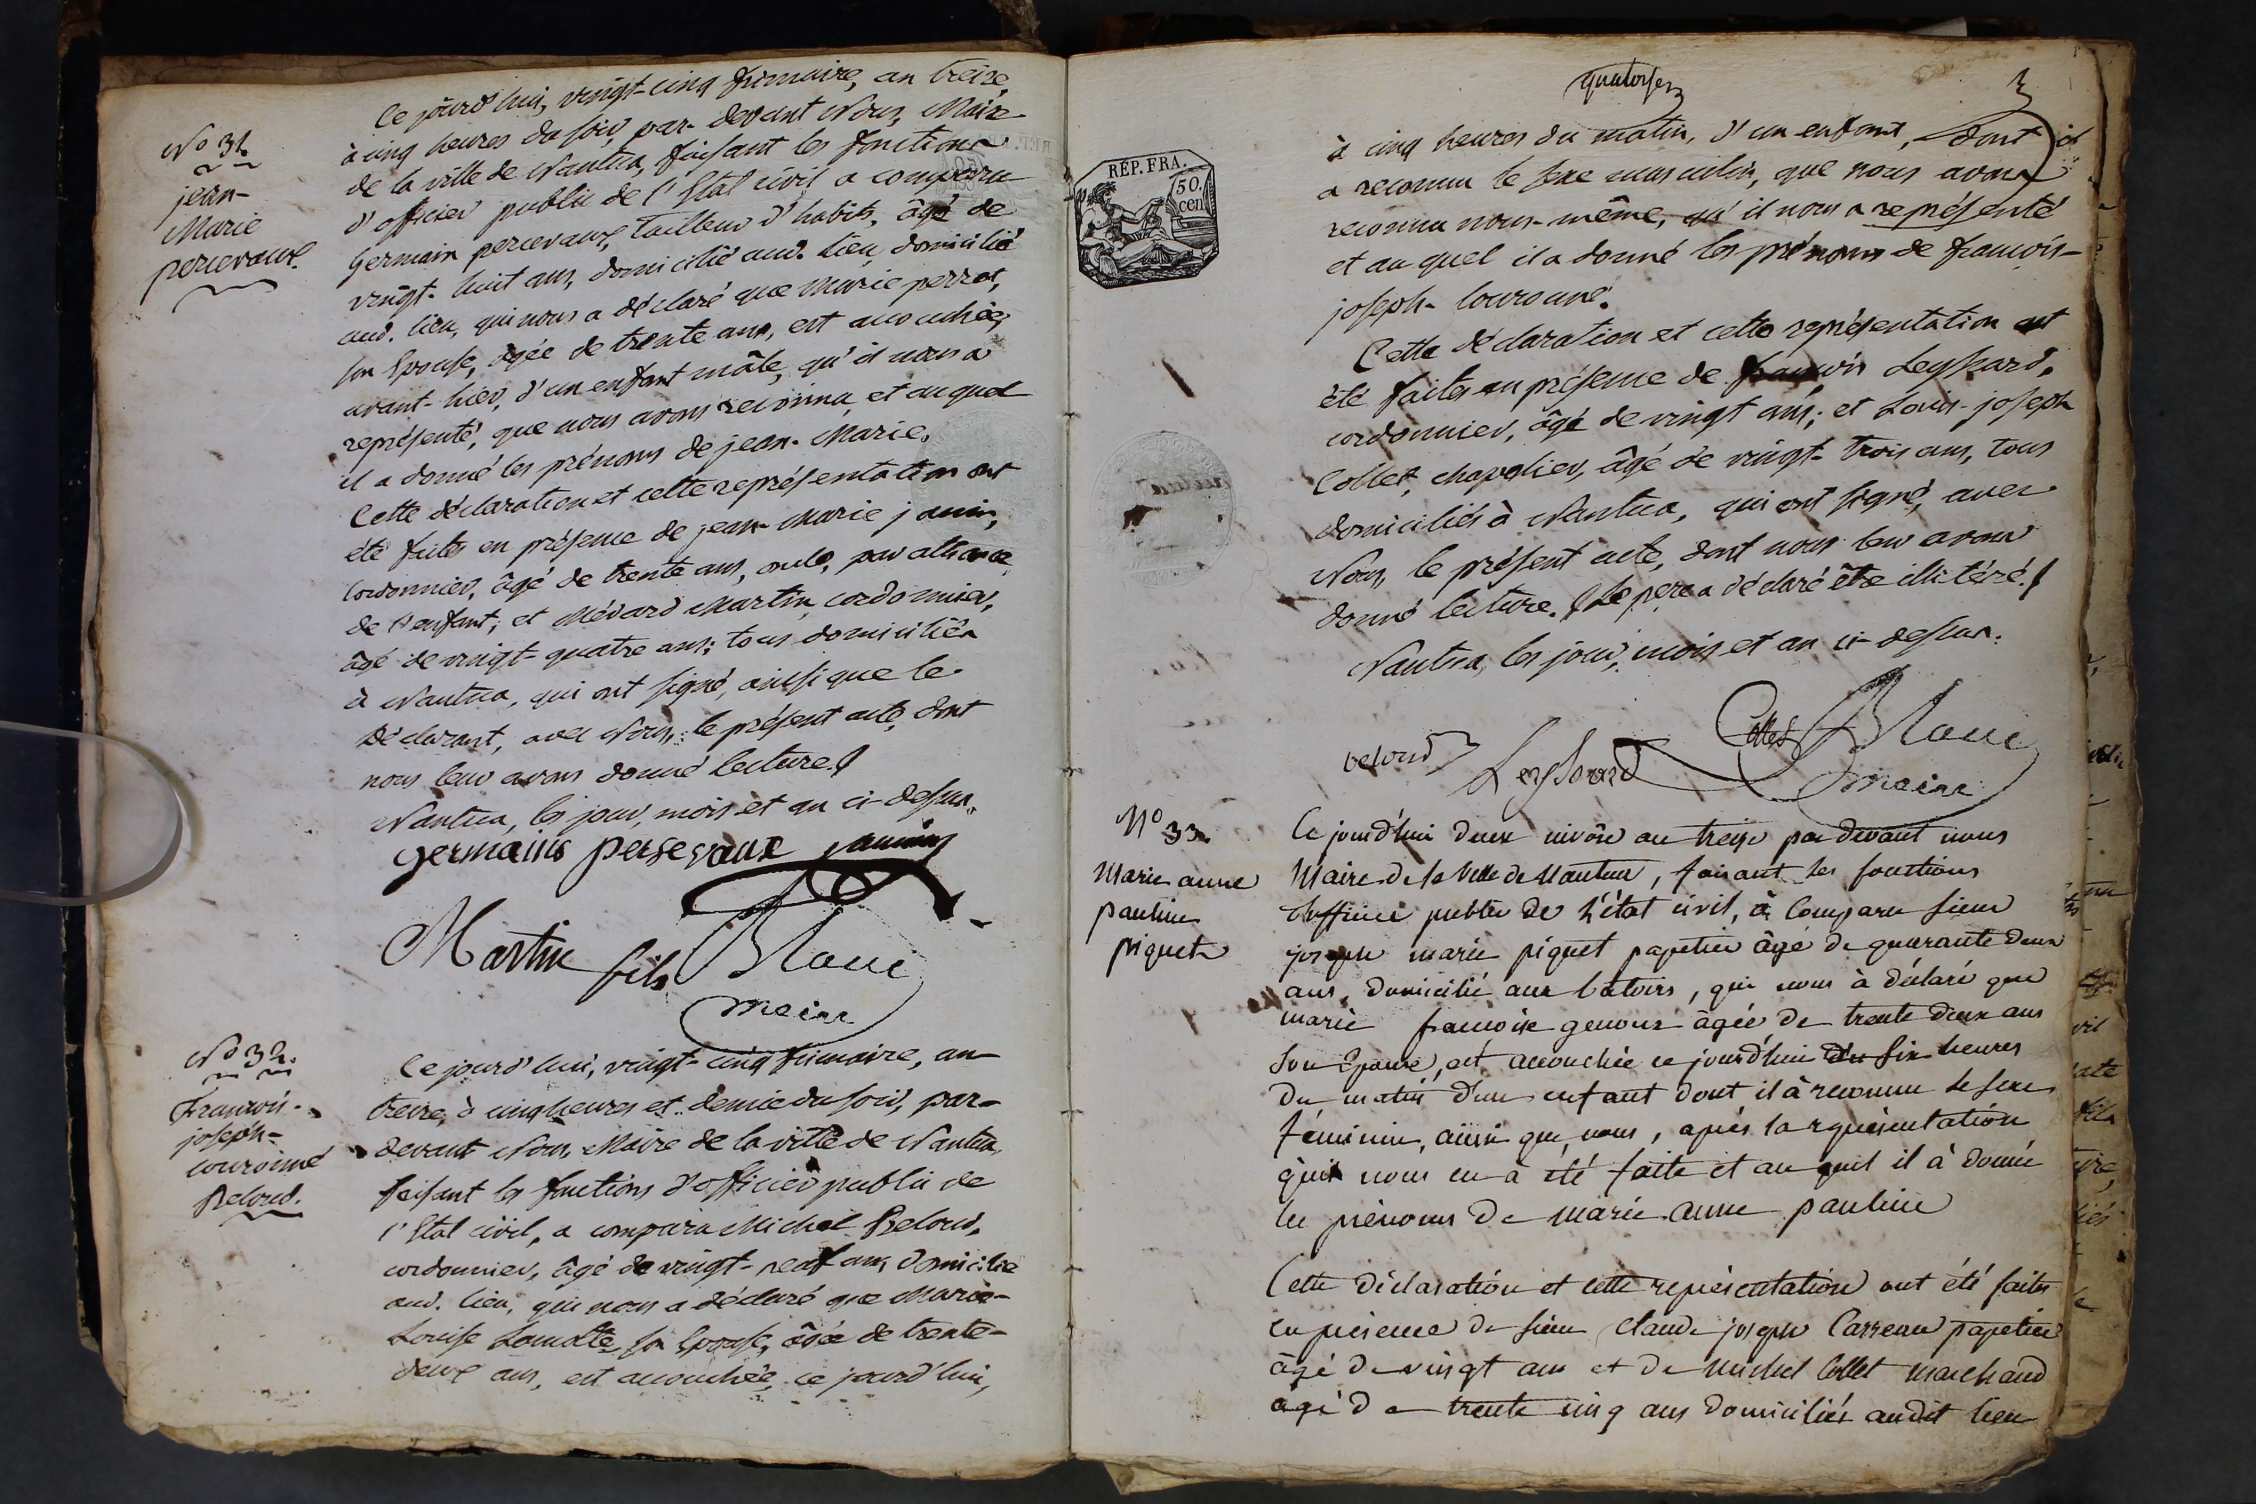 No 31.
jean-
Marie
percevaux.
Ce jourd'hui, vingt-cinq frimaire, an treize,
à cinq heures du soir, par-devant Nous, Maire
de la ville de Nantua, faisant les fonctions
d'officier public de l'Etat civil a comparu
Germain percevaux, tailleur d'habits, âgé de
vingt-huit ans, domicilié aud. lieu, domicilié
aud. lieu, qui nous a déclaré que Marie perrot,
son Epouse, âgée de trente ans, est accouchée,
avant-hier, d'un enfant mâle, qu'il nous a
représenté, que nous avons reconnu, et auquel
il a donné les prénoms de jean-Marie.
Cette déclaration et cette représentation ont
été faites en présence de jean Marie janin,
cordonnier, âgé de trente ans, oncle, par alliance,
de l'enfant; et Médard Martin, cordonnier,
âgé de vingt-quatre ans; tous domiciliés
à Nantua, qui ont signé, ainsi que le
Déclarant, avec Nous, le présent acte, dont
nous leur avons donné lecture.
Nantua, les jour, mois et an ci-dessus.
germains persevaux janin
Martin fils Blanc
maire
No 32.
François-
joseph-
couronné
Beloud.
Ce jourd'hui, vingt-cinq frimaire, an
treize, à cinq heures et demie du soir, par-
devant Nous, Maire de la ville de Nantua,
faisant les fonctions d'officier public de
l'Etat civil, a comparu Michel Beloud,
cordonnier, âgé de vingt-neuf ans, domicilié
aud. lieu, qui nous a déclaré que Marie-
Louise Lamotte, son Epouse, âgée de trente-
deux ans, est accouchée, ce jourd'hui,
quatorze
REP. FRA.
50.
cen
à cinq heures du matin, d'un enfant, dont il
a reconnu le sexe masculin, que nous avons
reconnu nous-même, qu'il nous a représenté
et auquel il a donné les prénoms de françois-
joseph-couronné.
Cette déclaration et cette représentation ont
été faites en présence de françois Leyssard,
cordonnier, âgé de vingt ans; et Louis-joseph
Collet, chapelier, âgé de vingt-trois ans, tous
domiciliés à Nantua, qui ont signé, avec
Nous, le présent acte, dont nous leur avons
donné lecture. (Le père a déclaré être illitéré.)
Nantua, les jour, mois et an ci-dessus.
beloud Leyssard Collet Blanc
maire
No 33.
Marie anne
pauline
piquet
Ce jourd'hui deux nivôse an treize par devant nous
Maire de la Ville de Nantua, faisant les fonctions
d'officier public de l'état civil, à Comparu sieur
joseph marie piquet papetier âgé de quarante deux
ans, domicilié aux batoirs, qui nous à déclaré que
marie françoise genoux âgée de trente deux ans
son Epouse, est accouchée ce jourd'hui du six heures
du matin d'un enfant dont il à reconnu le sexe
féminin, ainsi que nous, après la représentation
qu'il nous en a été faite et auquel il à donné
les prénoms de marie anne pauline
Cette déclaration et cette représentation ont été faites
en présence de sieur Claude joseph Carreau papetier
âgé de vingt ans et de Michel Collet marchand
âgé de trente cinq ans domiciliés audit lieu